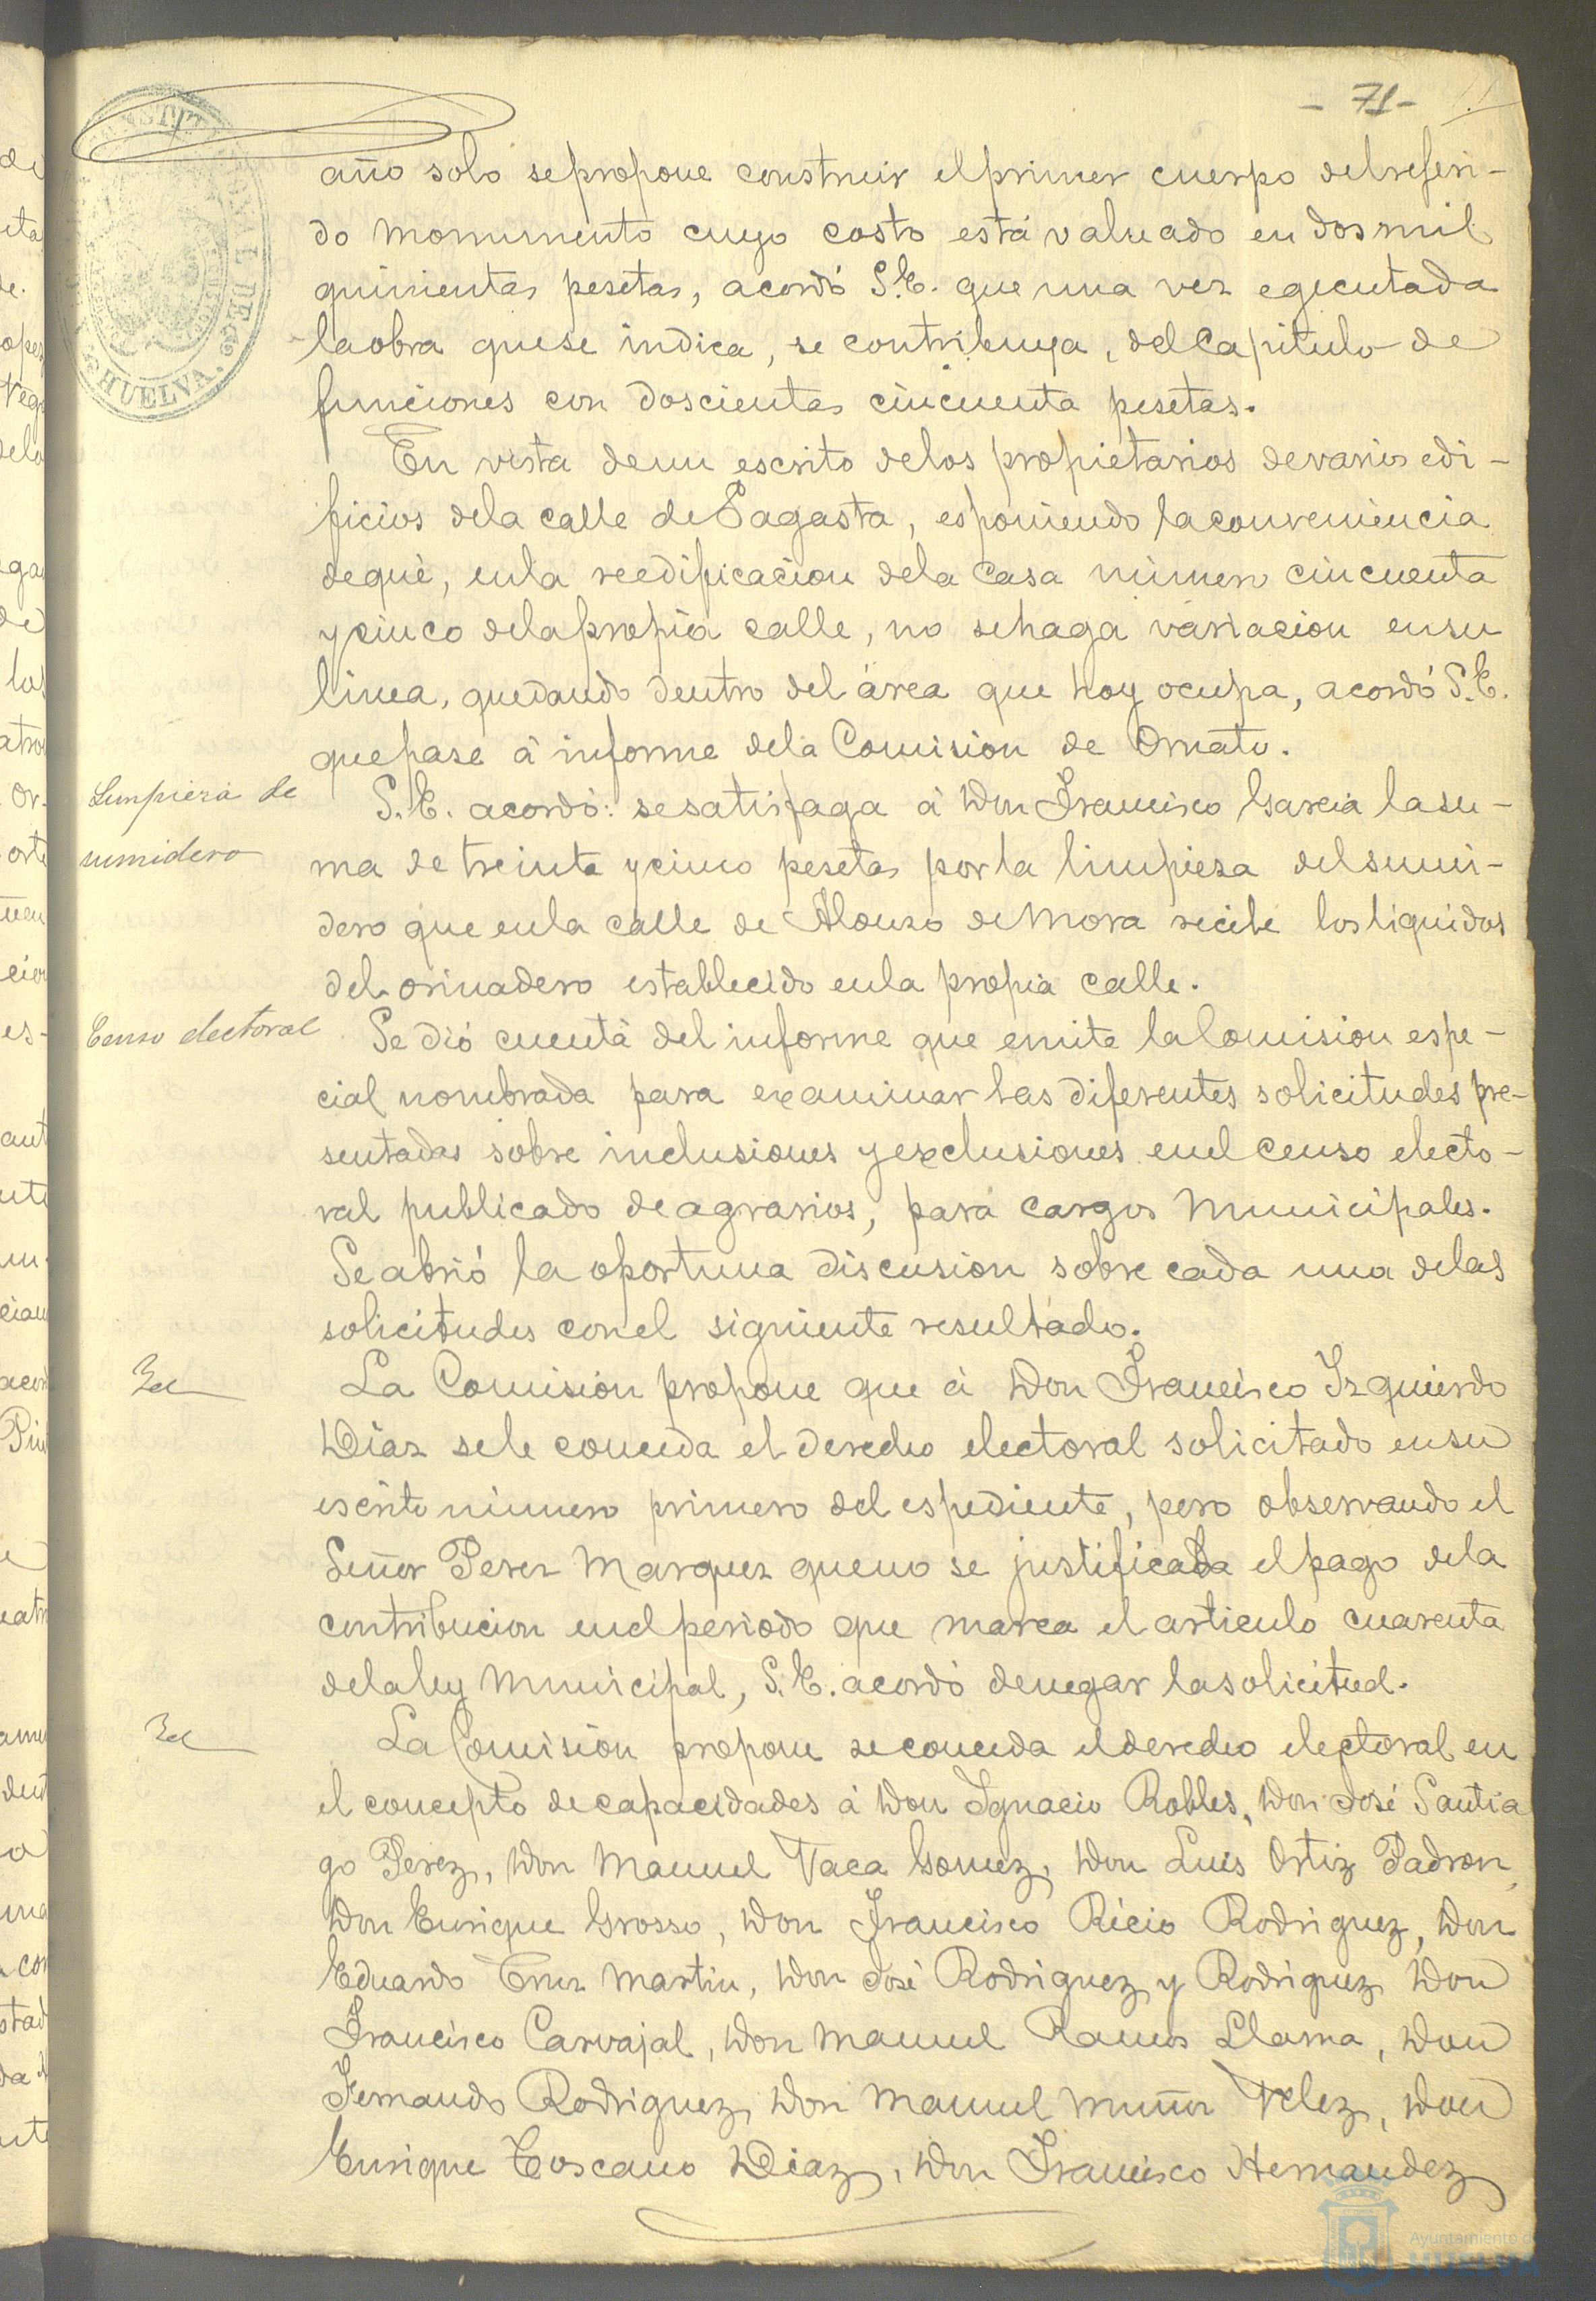 - 71 -
año solo se propone construir el primer cuerpo del referi-
do monumento cuyo costo está valuado en dos mil
quinientas pesetas, acordó S.E. que una vez egecutada
la obra que se indica, se contribuya, del Capitulo de
funciones con doscientas cincuenta pesetas.
En vista de un escrito de los propietarios de varios edi-
ficios de la calle de Sagasta, esponiendo la conveniencia
de que, en la reedificacion de la Casa número cincuenta
y cinco de la propia calle, no se haga variacion en su
linea, quedando dentro del área que hoy ocupa, acordó S.E.
que pase á informe de la Comision de Ornato.
Limpieza de
sumidero
S.E. acordó: se satisfaga á Don Francisco Garcia la su-
ma de treinta y cinco pesetas por la limpieza del sumi-
dero que en la calle de Alonso de Mora recibe los liquidos
del orinadero establecido en la propia calle.
Censo electoral
Se dió cuenta del informe que emite la Comision espe-
cial nombrada para examinar las diferentes solicitudes pre-
sentadas sobre inclusiones y exclusiones en el censo electo-
ral publicado de agrarios, para cargos Municipales.
Se abrió la oportuna discusion sobre cada una de las
solicitudes con el siguiente resultado.
Id
La Comision propone que á Don Francisco Izquierdo
Diaz se le conceda el derecho electoral solicitado en su
escrito número primero del espediente, pero observando el
Señor Perez Marquez que no se justificada el pago de la
contribucion en el periodo que marca el articulo cuarenta
de la ley Municipal, S.E. acordó denegar la solicitud.
Id
La Comision propone se conceda el derecho electoral en
el concepto de capacidades á Don Ignacio Robles, Don José Santia
go Perez, Don Manuel Vaca Gomez, Don Luis Ortiz Padron,
Don Enrique Grosso, Don Francisco Ricio Rodriguez, Don
Eduardo Martin, Don José Rodriguez y Rodriguez Don
Francisco Carvajal, Don Manuel Ramos Llama, Don
Fernando Rodriguez, Don Manuel Muñoz Velez, Don
Enrique Toscano Diaz, Don Francisco Hernandez
HUELVA.
Ayuntamiento de
HUELVA